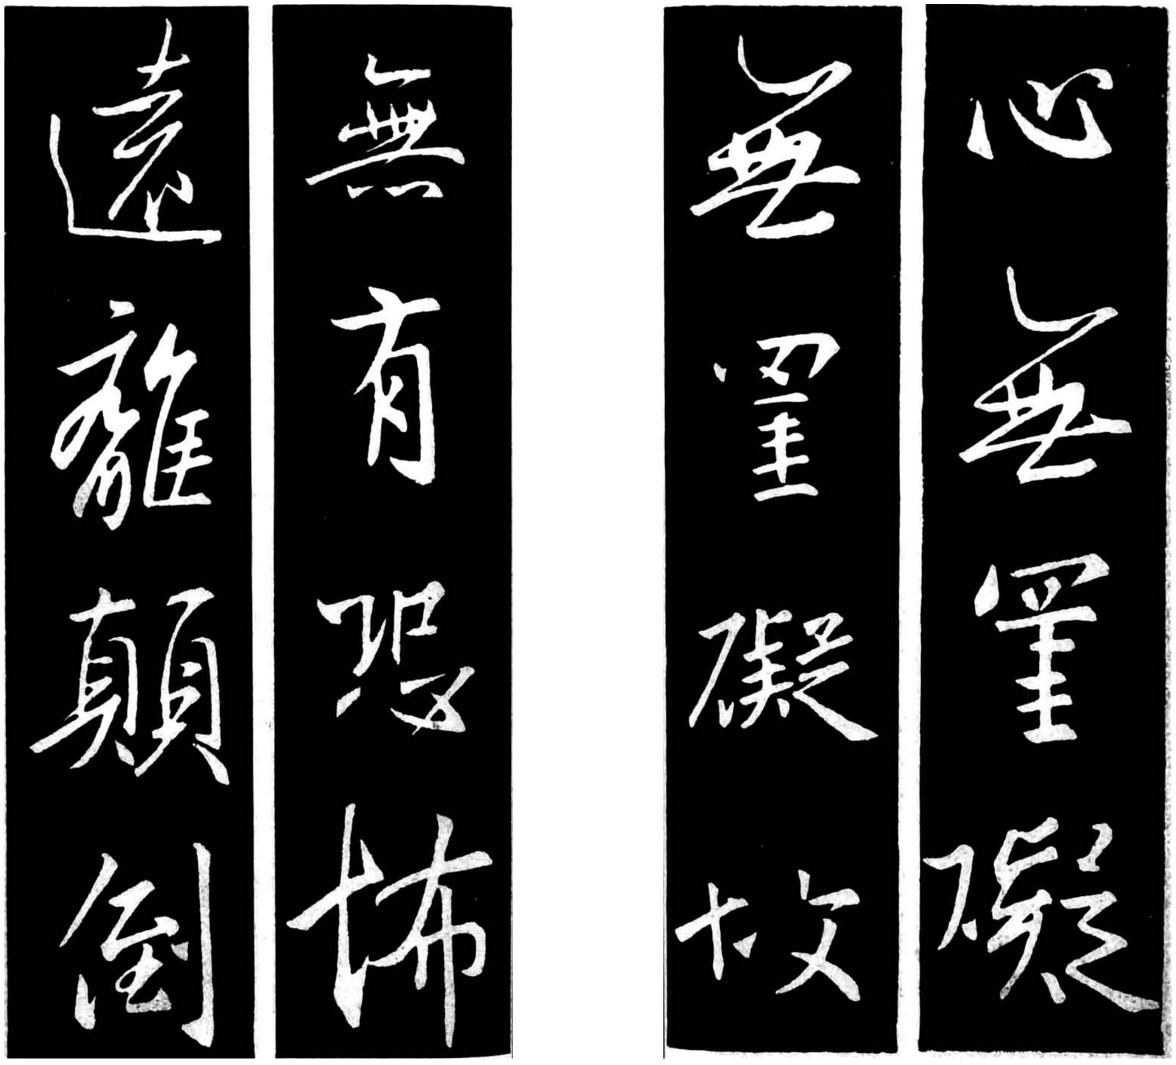 心無罣礙
無罣礙故
無有恐怖
遠離顛倒